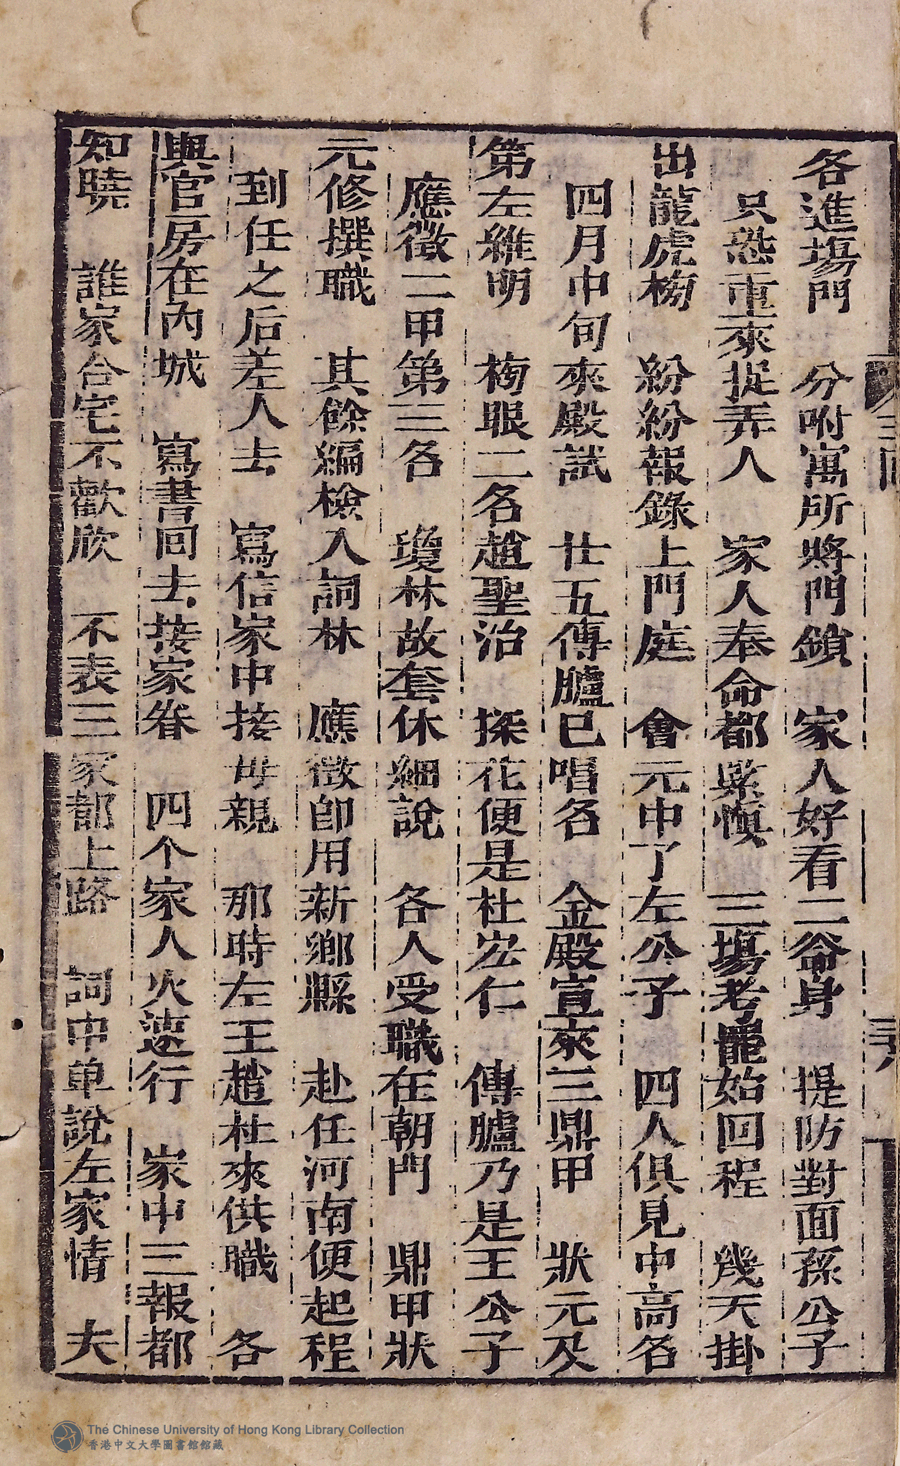 各進塲門 分咐寓所將門鎖 家人好看二爺身 提防對面孫公子
只恐重來捉弄人 家人奉命都緊慎 三塲考罷始回程 幾天掛
出龍虎榜 紛紛報錄上門庭 會元中了左公子 四人俱見中高名
四月中旬來殿試 廿五傳臚已唱名 金殿宣來三鼎甲 狀元及
第左維明 榜眼二名趙聖治 探花便是杜宏仁 傳臚乃是王公子
應徵二甲第三名 瓊林故套休細說 各人受職在朝門 鼎甲狀
元修撰職 其餘編檢入詞林 應徵即用新鄉縣 赴任河南便起程
到任之后差人去 寫信家中接母親 那時左王趙杜來供職 各
興官房在內城 寫書回去接家眷 四个家人火速行 家中三報都
知曉 誰家合宅不歡欣 不表三家都上路 詞中单說左家情 夫
The Chinese University of Hong Kong Library Collection
香港中文大學圖書館館藏